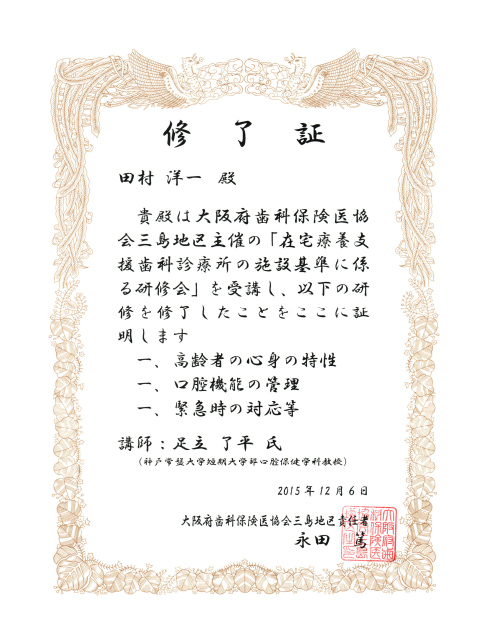 修了証
田村 洋一 殿
貴殿は大阪府歯科保険医協
会三島地区主催の「在宅療養支
援歯科診療所の施設基準に係
る研修会」を受講し、以下の研
修を修了したことをここに証
明します
一、高齢者の心身の特性
一、口腔機能の管理
一、緊急時の対応等
講師：足立 了平 氏
（神戸常盤大学短期大学部口腔保健学科教授）
2015年12月6日
大阪府歯科保険医協会三島地区責任者
永田 篤